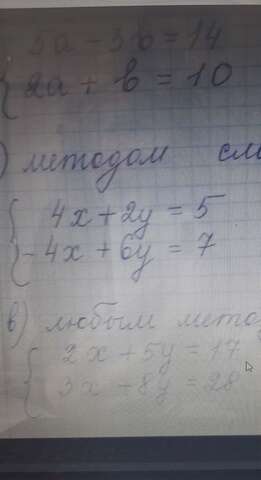 5a - 3b = 14
2a + b = 10
) методом сл
4x + 2y = 5
-4x + 6y = 7
в) любым мето
2x + 5y = 17
3x - 8y = 28